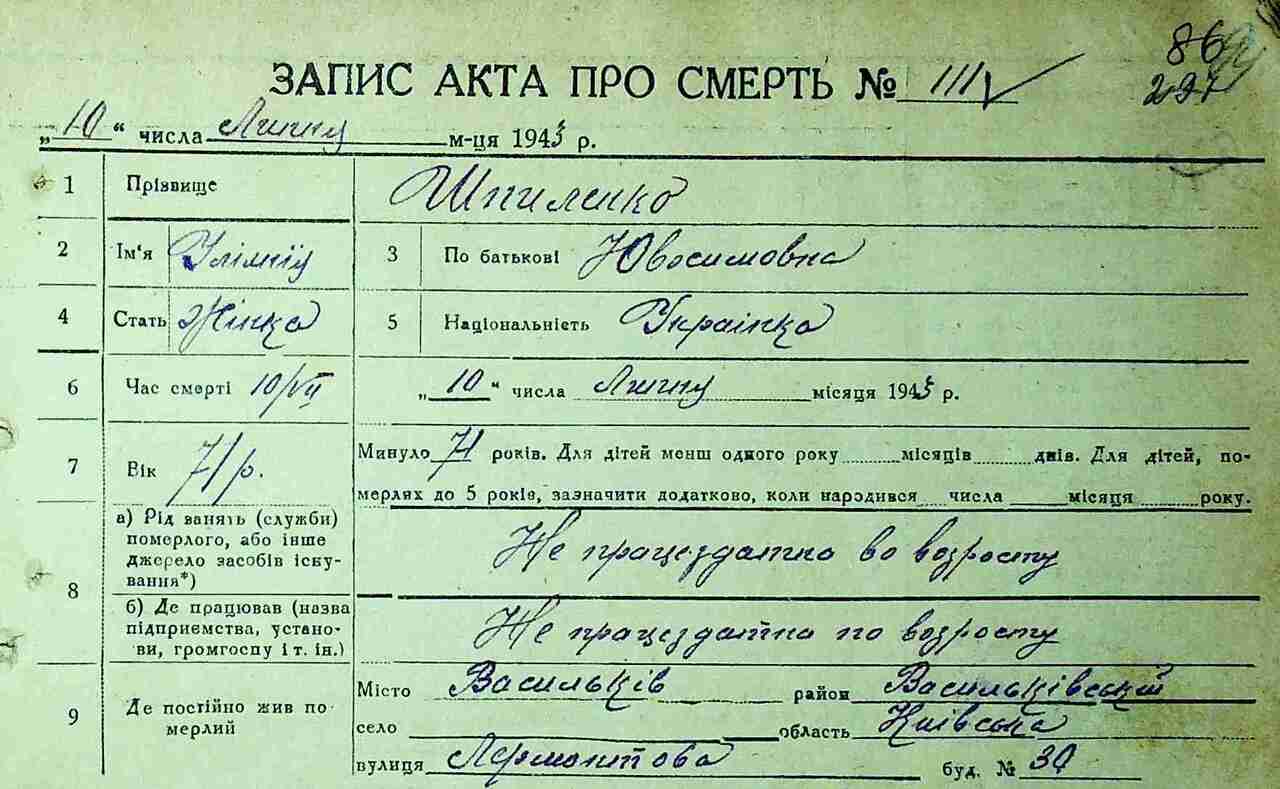 86
297
ЗАПИС АКТА ПРО СМЕРТЬ № 111
„10“ числа Липня м-ця 1943 р.
1 Прізвище Шпиленко
2 Ім'я 3 По батькові
4 Стать Жінка 5 Національність Українка
6 Час смерті 10/VII „10“ числа Липня місяця 1943 р.
7 Вік 71 р. Минуло 71 років. Для дітей менш одного року місяців днів. Для дітей, по-
мерлях до 5 років, зазначити додатково, коли народився числа місяця року.
8 а) Рід занять (служби)
померлого, або інше
джерело засобів існу-
вання*)
Не працездатна во возросту
б) Де працював (назва
підприємства, устано-
ви, громгоспу і т. ін.)
Не працездатна по возросту
9 Де постійно жив по-
мерлий
Місто Васильків район Васильківський
село область Київська
вулиця Лермонтова буд. № 30